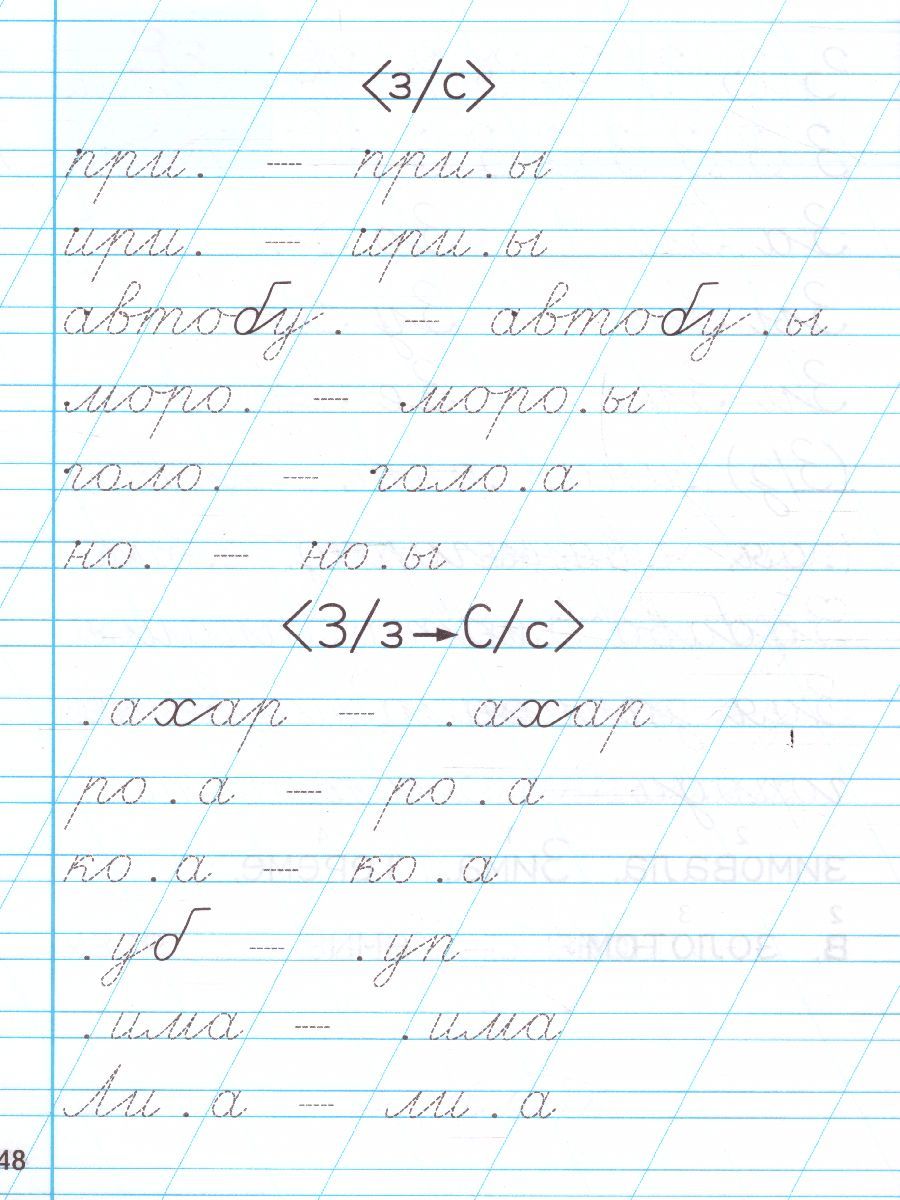 <з/с>
при. ---- при.ы
ири. ---- ири.ы
автобу. ---- автобу.ы
моро. ---- моро.ы
голо. ---- голо.а
но. ---- но.ы
<З/з→С/с>
.ахар ---- .ахар
ро.а ---- ро.а
ко.а ---- ко.а
.уб ---- .уп
.има ---- .има
Ли.а ---- ли.а
48